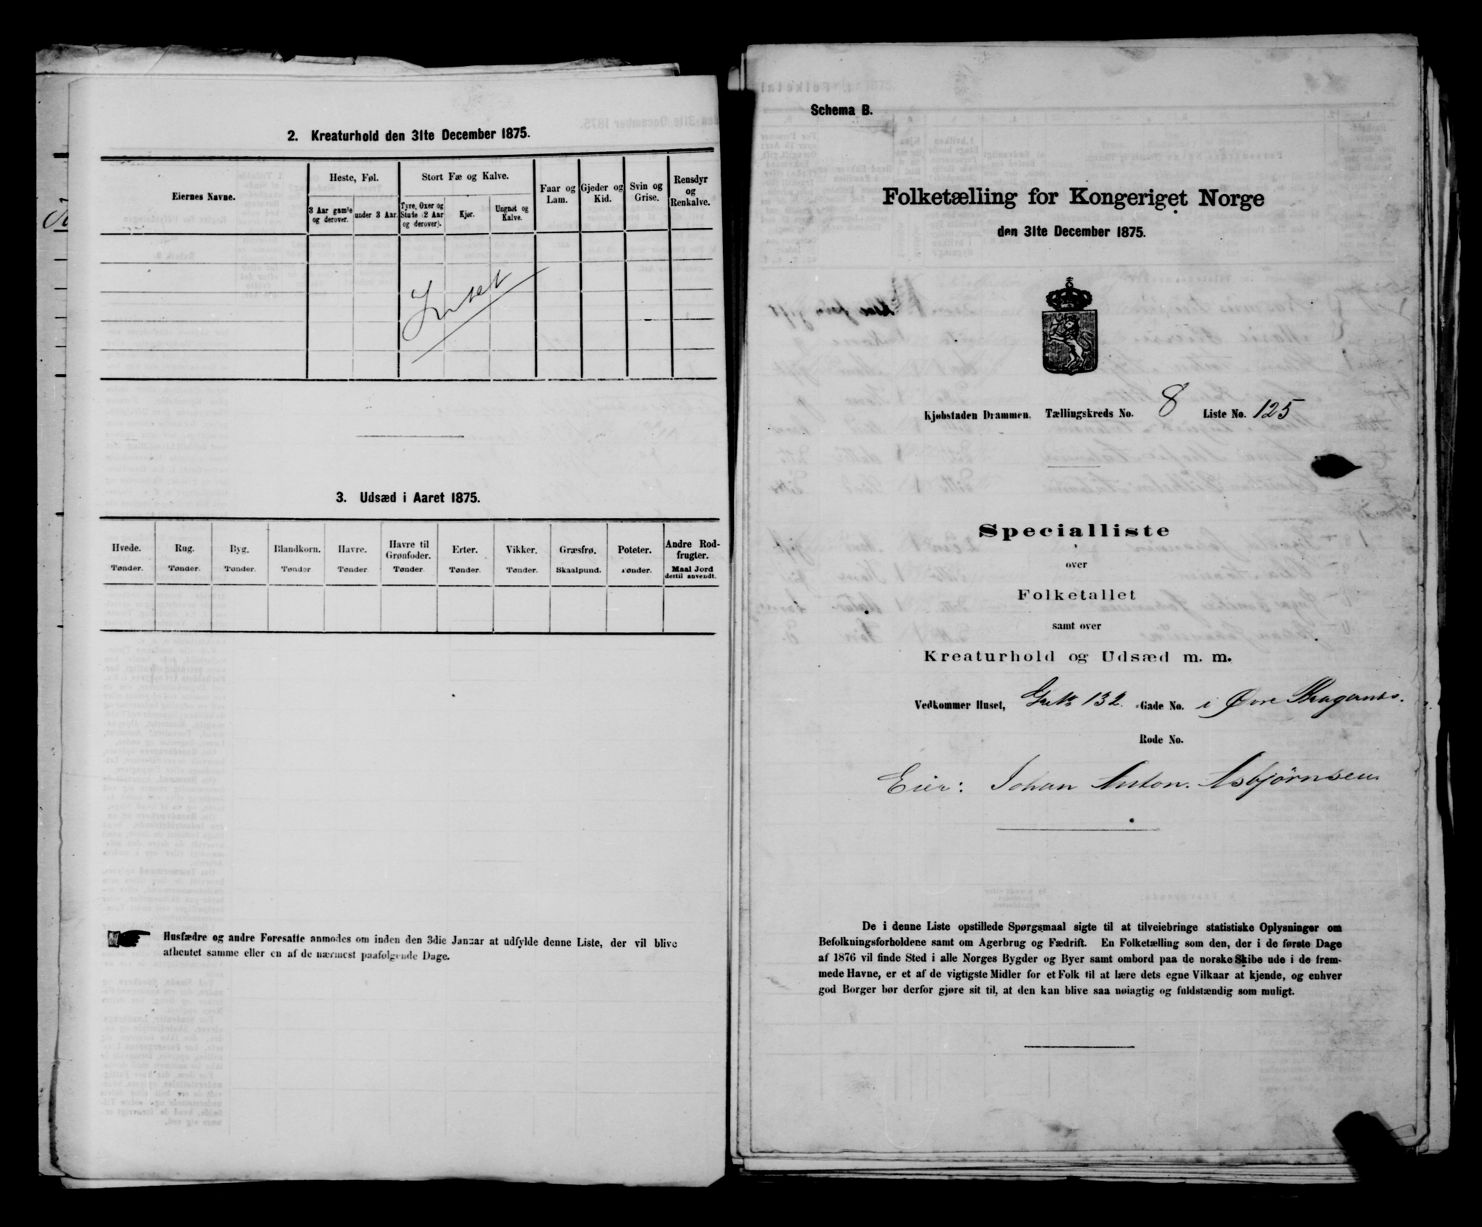 2. Kreaturhold den 31te December 1875.
Eiernes Navne.
Heste, Føl.
Stort Fæ og Kalve.
Faar og Lam.
Gjeder og Kid.
Svin og Grise.
Rensdyr og Renkalve.
3 Aar gamle og derover.
under 3 Aar.
Tyre, Oxer og Stude (2 Aar og derover).
Kjør.
Ungnød og Kalve.
Intet
3. Udsæd i Aaret 1875.
Hvede.
Rug.
Byg.
Blandkorn.
Havre.
Havre til Grønfoder.
Erter.
Vikker.
Græsfrø.
Poteter.
Andre Rodfrugter.
Tønder.
Tønder.
Tønder.
Tønder
Tønder.
Tønder.
Tønder.
Tønder.
Skaalpund.
Tønder.
Maal Jord dertil anvendt.
Husfædre og andre Foresatte anmodes om inden den 3die Januar at udfylde denne Liste, der vil blive
afhentet samme eller en af de nærmest paafølgende Dage.
Schema B.
Folketælling for Kongeriget Norge
den 31te December 1875.
Kjøbstaden Drammen. Tællingskreds No. 8 Liste No. 125
Specialliste
over
Folketallet
samt over
Kreaturhold og Udsæd m. m.
Vedkommer Huset, 132 Gade No. i Øvre Bragernes.
Rode No.
Eier: Johan Anton Asbjørnsen
De i denne Liste opstillede Spørgsmaal sigte til at tilveiebringe statistiske Oplysninger om
Befolkningsforholdene samt om Agerbrug og Fædrift. En Folketælling som den, der i de første Dage
af 1876 vil finde Sted i alle Norges Bygder og Byer samt ombord paa de norske Skibe ude i de frem-
mede Havne, er et af de vigtigste Midler for et Folk til at lære dets egne Vilkaar at kjende, og enhver
god Borger bør derfor gjøre sit til, at den kan blive saa nøiagtig og fuldstændig som muligt.